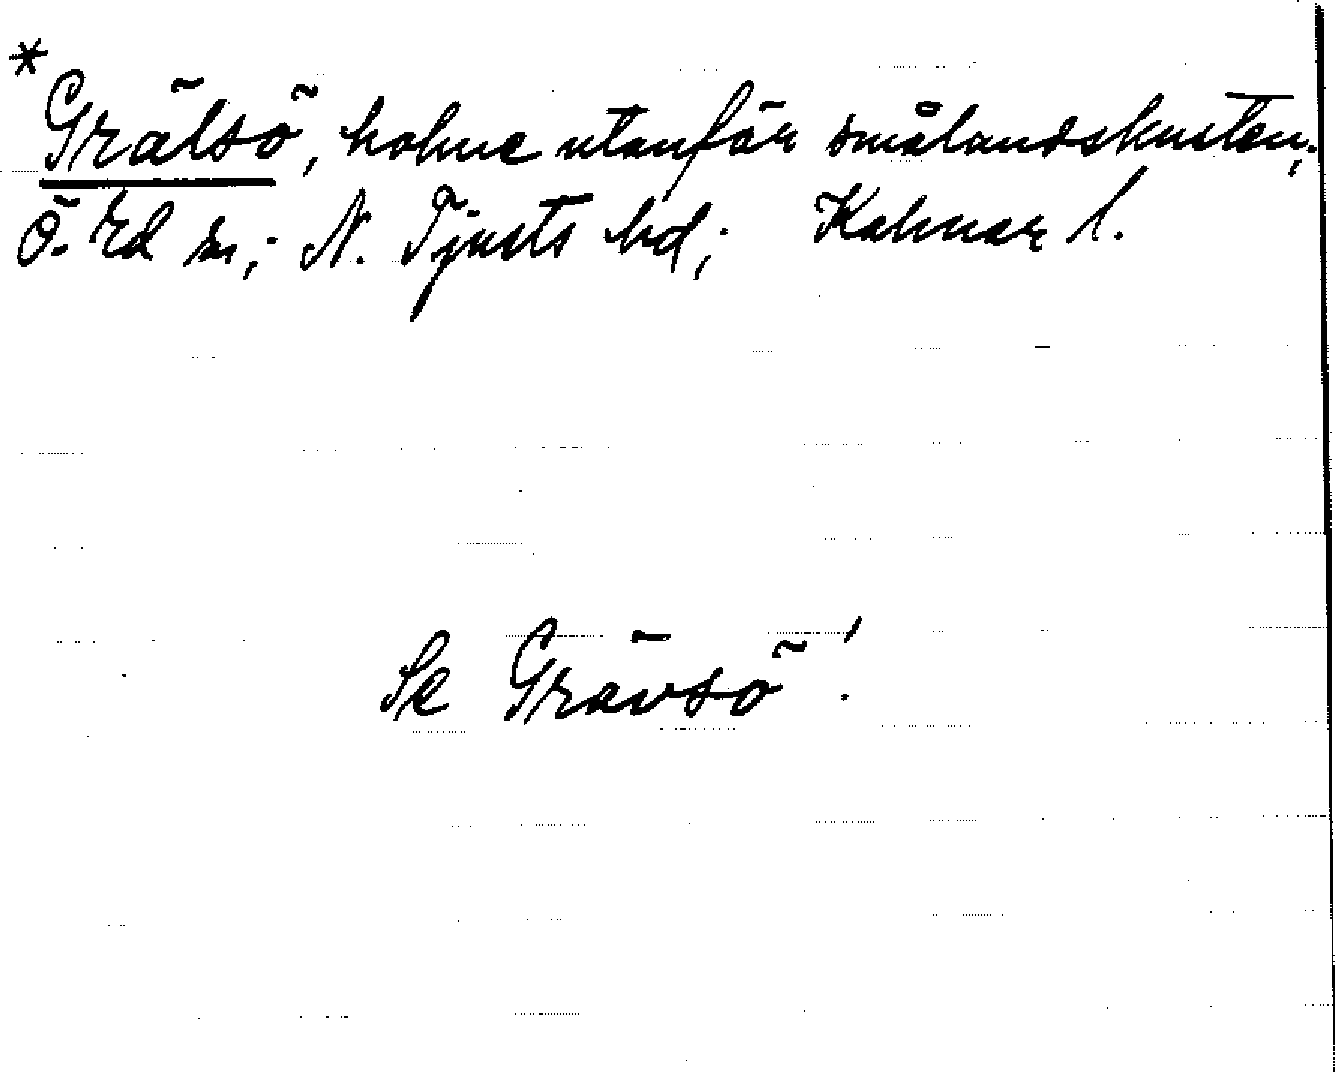 * Grälsö, holme utanför smålandskusten;
Ö. Ed sn; N. Tjusts hd; Kalmar l.
Se Grävsö!